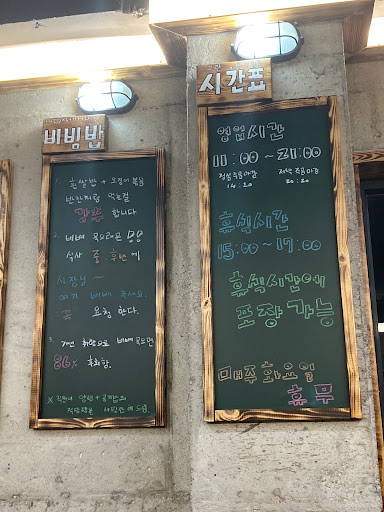 비빔밥
1. 흰쌀밥 + 오징어 볶음
반찬처럼 먹는걸
강추 합니다
2. 비벼 먹으려면
식사 중·후반 에
사장님 ~
여기 비벼 주세요.
요청 한다.
3. 개면 취향으로 비벼 먹으면
86% 후회함.
시간표
영업시간
11:00 ~ 21:00
점심주문마감 저녁 주문마감
14:20 20:20
휴식시간
15:00 ~ 17:00
휴식시간에
포장 가능
매주 화요일
휴무